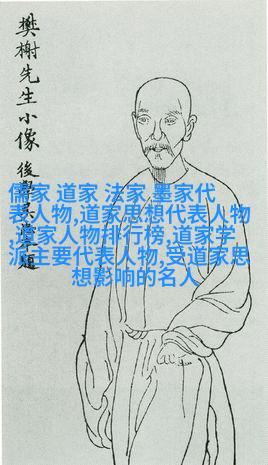 樊榭先生小像
後學
題
儒家 道家 法家 墨家代
表人物,道家思想代表人物
,道家人物排行榜,道家学
派主要代表人物,受道家思
想影响的名人